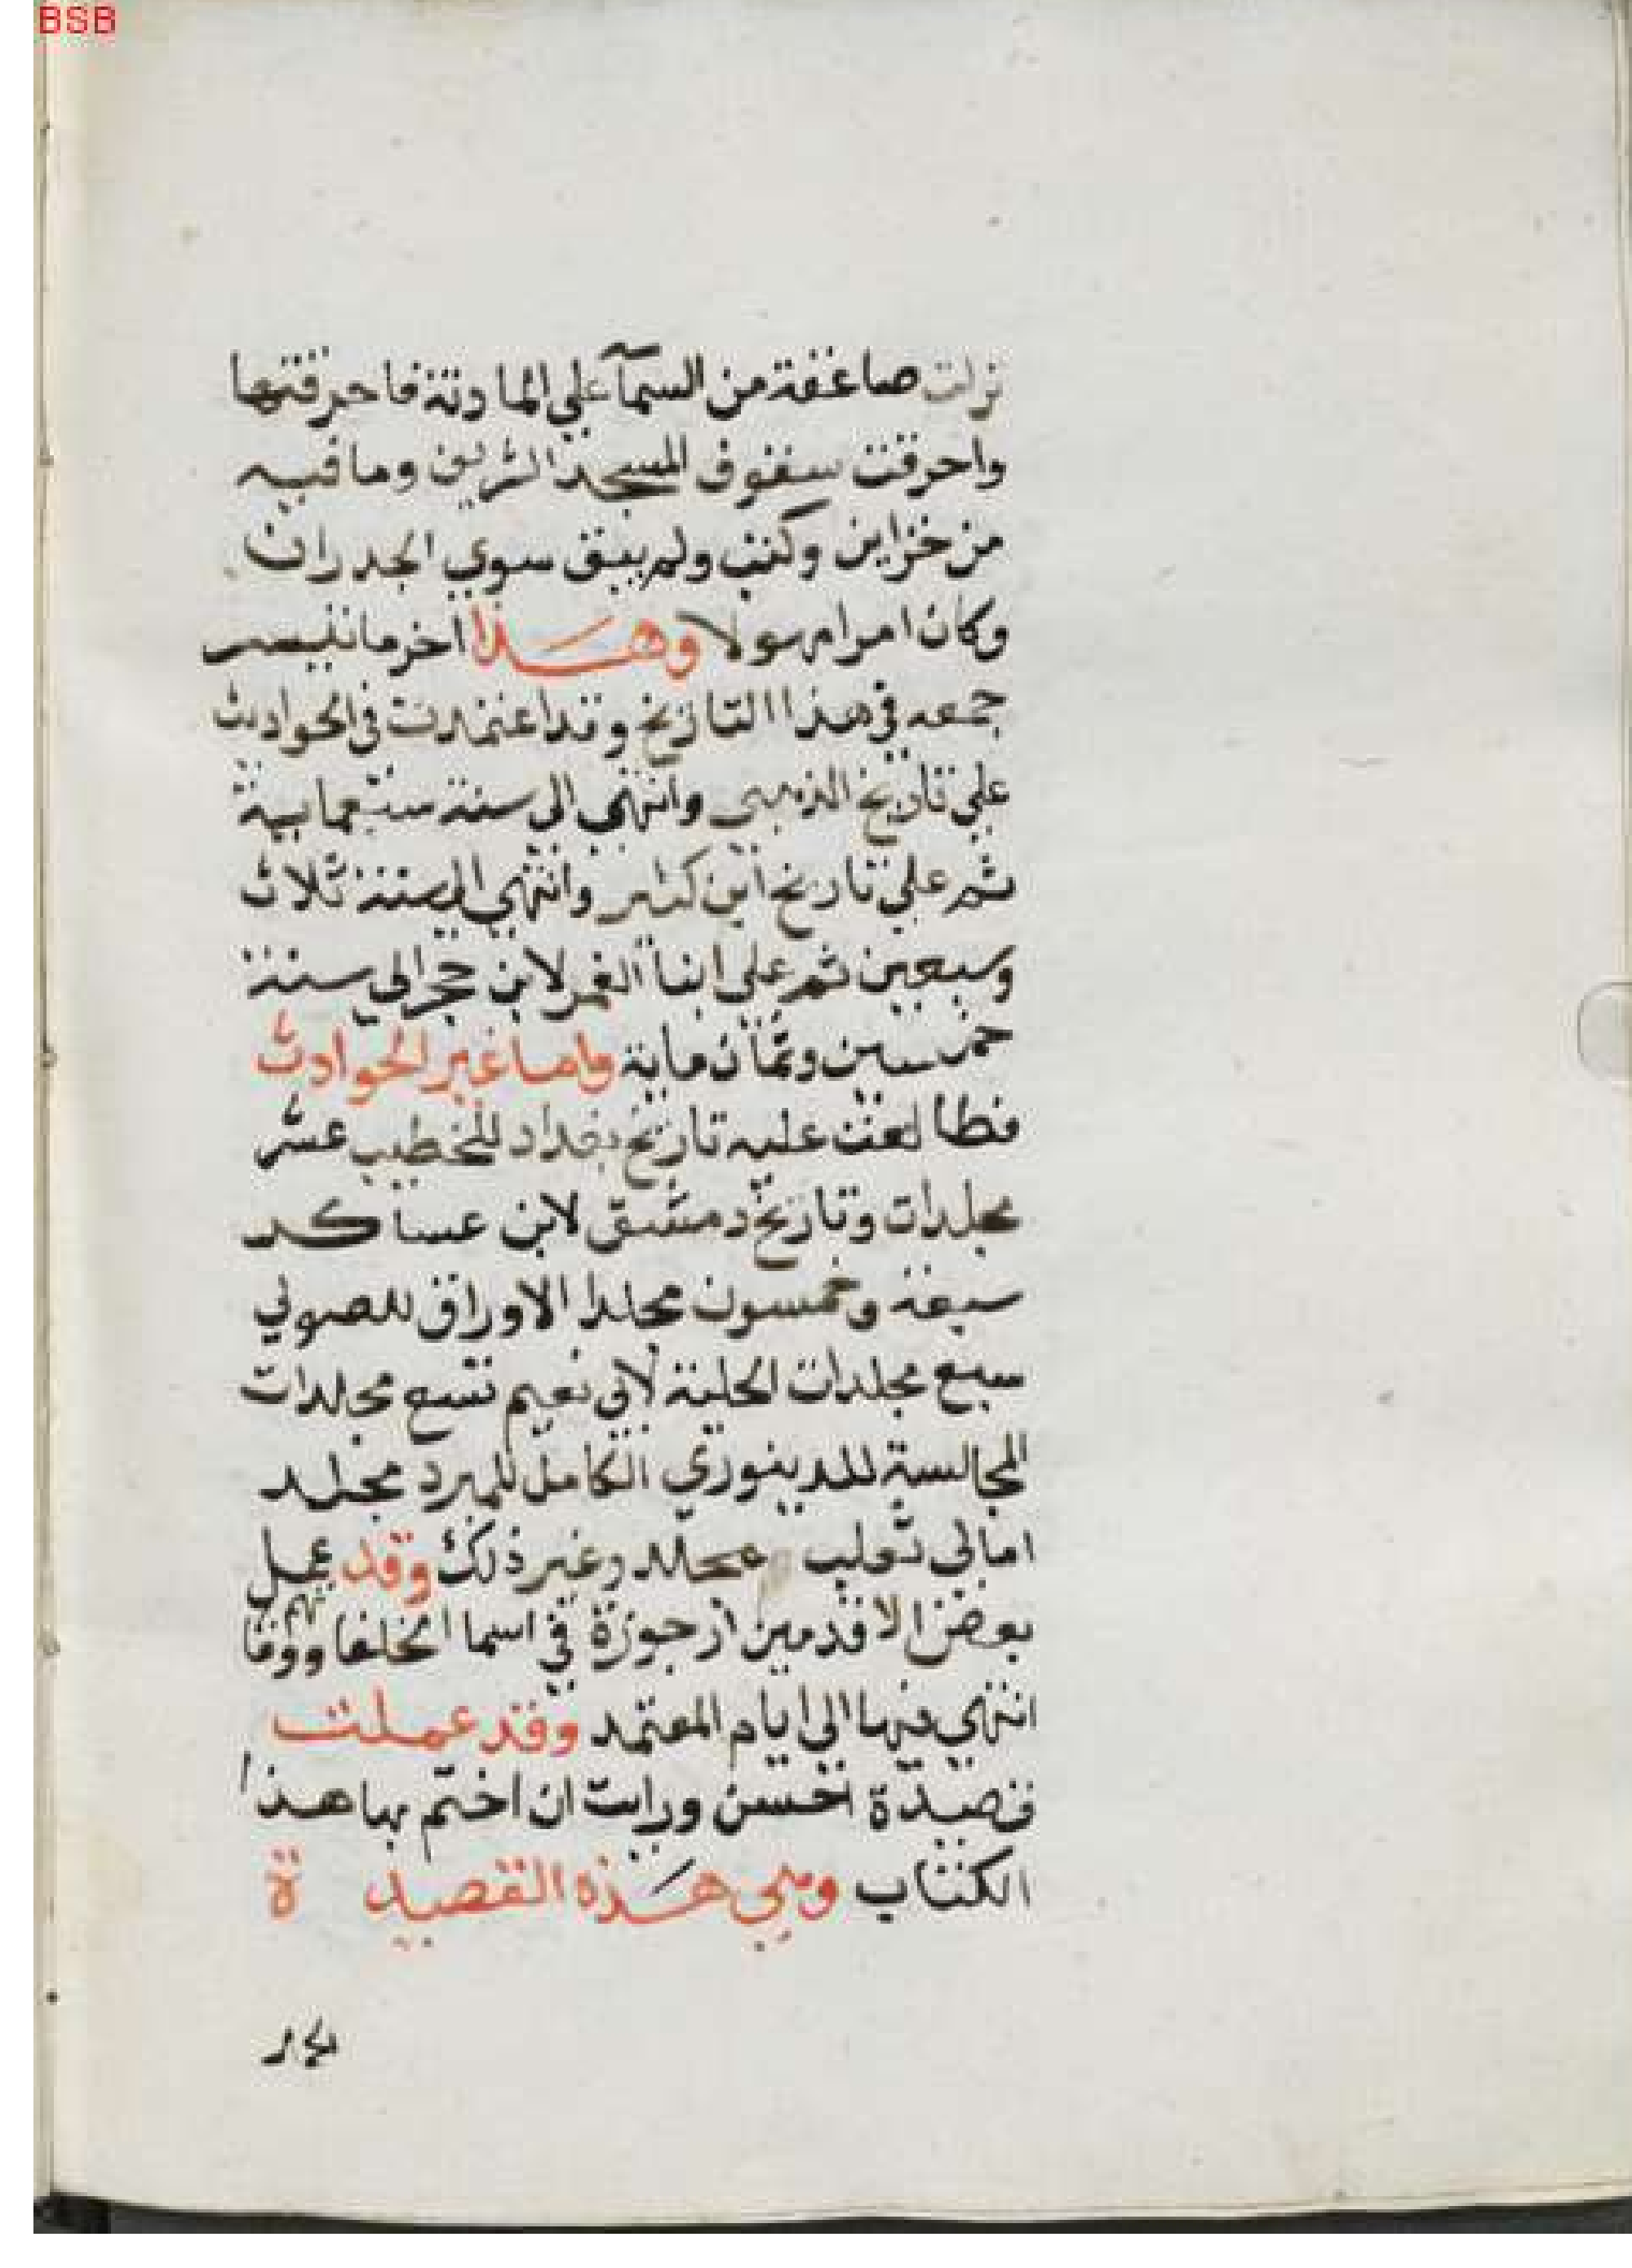 BSB
نزلت صاعقة من السمآ علي المادنة فاحرقتها
واحرقت سقوف المسجد الشريف وما فيه
من خزاين وكتب ولم يبق سوي الجدران
وكان امرا مهولا وهذا اخر ما تيسر
جمعه في هذا التاريخ وقد اعتمدت في الحوادث
علي تاريخ الذهبي وانتهي الي سنة سبعماية
ثم علي تاريخ ابن كثير وانتهي الي سنة ثلاث
وسبعين ثم علي انبا الغمر لابن حجر الي سنة
خمسين وثمان ماية واما غير الحوادث
فطالعت عليه تاريخ بغداد للخطيب عشر
مجلدات وتاريخ دمشق لابن عساكر
سبعة وخمسون مجلدا الاوراق للصولي
سبع مجلدات الحلية لابي نعيم تسع مجلدات
المجالسة للدينوري الكامل للمبرد مجلد
امالي ثعلب مجلد وغير ذلك وقد عمل
بعض الاقدمين ارجوزة في اسما الخلفا ووفاتهم
انتهي فيها الي ايام المعتمد وقد عملت
قصيدة احسن ورايت ان اختم بها هذا
الكتاب وهي هذه القصيدة